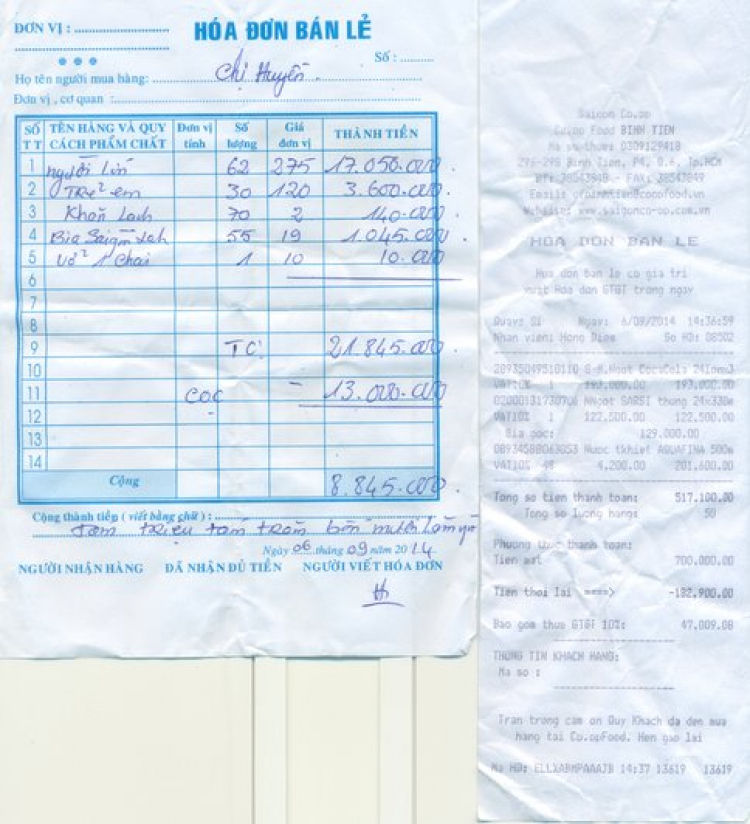 ĐƠN VỊ :
HÓA ĐƠN BÁN LẺ
Số :
Họ tên người mua hàng: Chị Huyền.
Đơn vị, cơ quan :
SỐ TT TÊN HÀNG VÀ QUY CÁCH PHẨM CHẤT Đơn vị tính Số lượng Giá đơn vị THÀNH TIỀN
1 người lớn 62 275 17.050.000
2 Trẻ em 30 120 3.600.000
3 Khăn lạnh 70 2 140.000
4 Bia Saigon 55 19 1.045.000
5 Vở 1 chai 1 10 10.000
6
7
8
9 TC: 21.845.000.
10
11 CỌC – 13.000.000
12
13
14
Cộng 8.845.000.
Cộng thành tiền ( viết bằng chữ ) :
Tám triệu tám trăm bốn mươi lăm
Ngày 06 tháng 09 năm 2014
NGƯỜI NHẬN HÀNG ĐÃ NHẬN ĐỦ TIỀN NGƯỜI VIẾT HÓA ĐƠN
Saigon Co.op
Co.op Food BINH TIEN
Ma so thue: 0309129418
296-298 Binh Tien, P4, Q.6, Tp.HCM
DT: 38543848 - FAX: 38547849
Email: cfbinhtien@coopfood.vn
Website: www.saigonco-op.com.vn
HOA DON BAN LE
Hoa don ban le co gia tri
xuat Hoa don GTGT trong ngay
Quay: 01 Ngay: 6/09/2014 14:36:59
Nhan vien: Hong Diem So HD: 08502
VAT10% 1 193,000.00 193,000.00
VAT10% 1 122,500.00 122,500.00
Gia goc: 129,000.00
VAT10% 48 4,200.00 201,600.00
Tong so tien thanh toan: 517,100.00
Tong so luong hang: 50
Phuong thuc thanh toan:
Tien mat 700,000.00
Tien thoi lai ====> -182,900.00
Bao gom thue GTGT 10%: 47,009.08
THONG TIN KHACH HANG:
Ma so :
Tran trong cam on Quy Khach da den mua
hang tai Co.opFood. Hen gap lai
Ma HD: ELLXABMPAAAJB 14:37 13619 13619